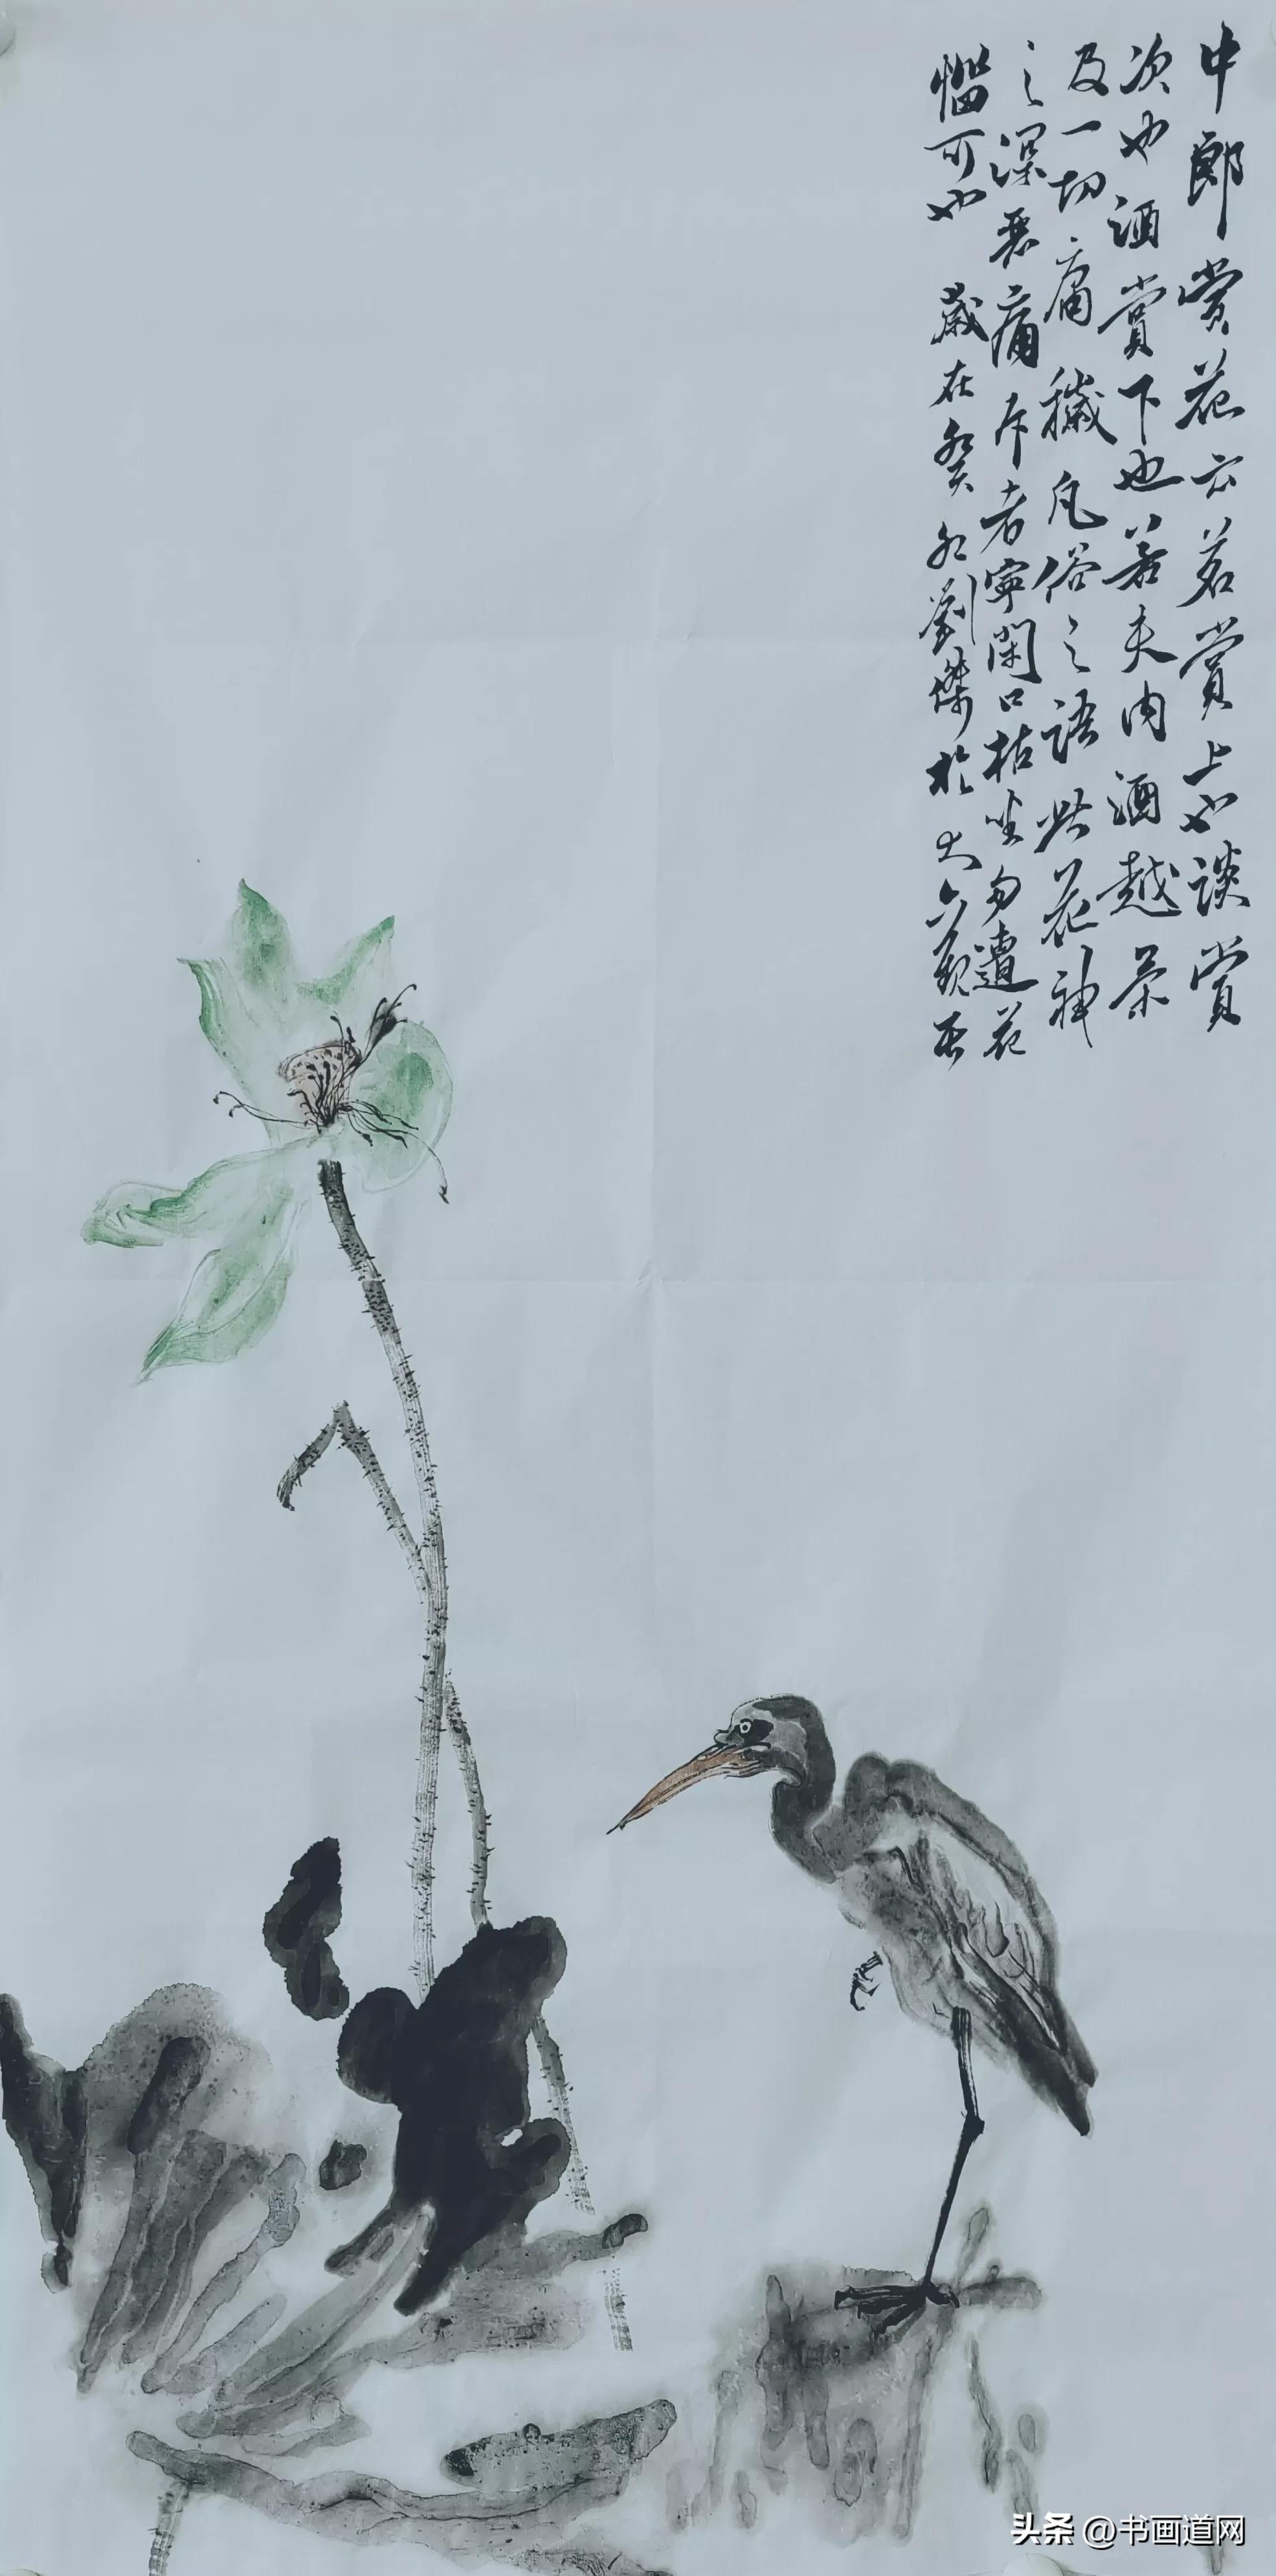 中郎赏花云茗赏上也谈赏
次也酒赏下也若夫内酒越茶
及一切庸穢凡俗之语此花神
之深恶痛斥者寧闭口枯坐勿遭花
惱可也 歲在癸 劉傑於大
头条 @书画道网